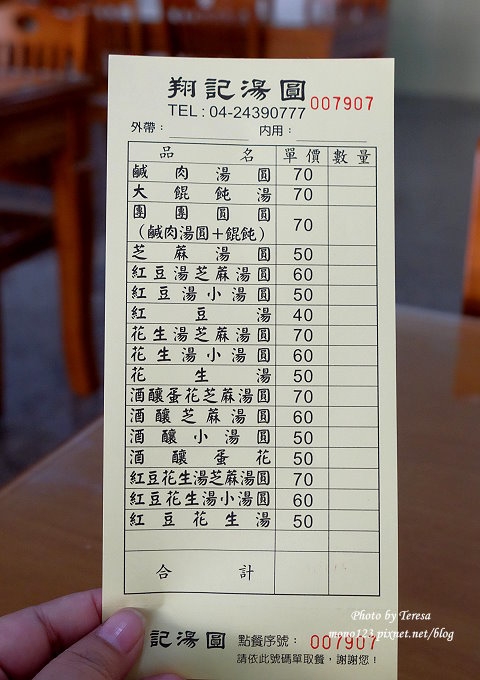 翔記湯圓 007907
TEL：04-24390777
外帶： 內用：
品名 單價 數量
鹹肉湯圓 70
大餛飩湯 70
團團圓圓
（鹹肉湯圓＋餛飩） 70
芝蔴湯圓 50
紅豆湯芝蔴湯圓 60
紅豆湯小湯圓 50
紅豆湯 40
花生湯芝蔴湯圓 70
花生湯小湯圓 60
花生湯 50
酒釀蛋花芝蔴湯圓 70
酒釀芝蔴湯圓 60
酒釀小湯圓 50
酒釀蛋花 50
紅豆花生湯芝蔴湯圓 70
紅豆花生湯小湯圓 60
紅豆花生湯 50
合計
記湯圓 點餐序號： 007907
請依此號碼單取餐，謝謝您！
Photo by Teresa
mono123.pixnet.net/blog